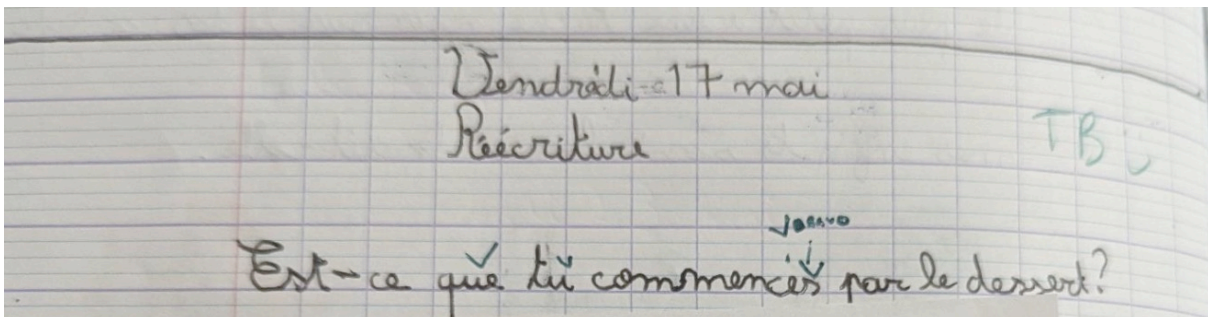 Vendredi 17 mai
Réécriture
TB
bravo
Est-ce que tu commences par le dessert?